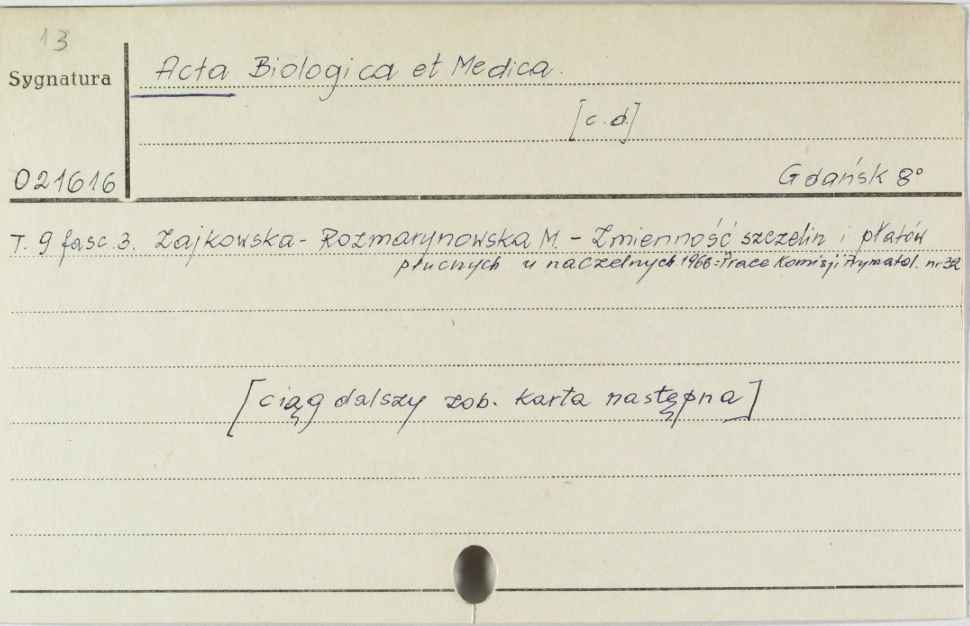 13
Sygnatura
Acta Biologica et Medica.
[c.d.]
021616
Gdańsk 8°
T. 9 fasc. 3. Zajkowska-Rozmarynowska M. - Zmienność szczelin i płatów
płucnych u naczelnych 1966=Prace Komisji Prymatol. nr 32
[ciąg dalszy zob. karta następna]